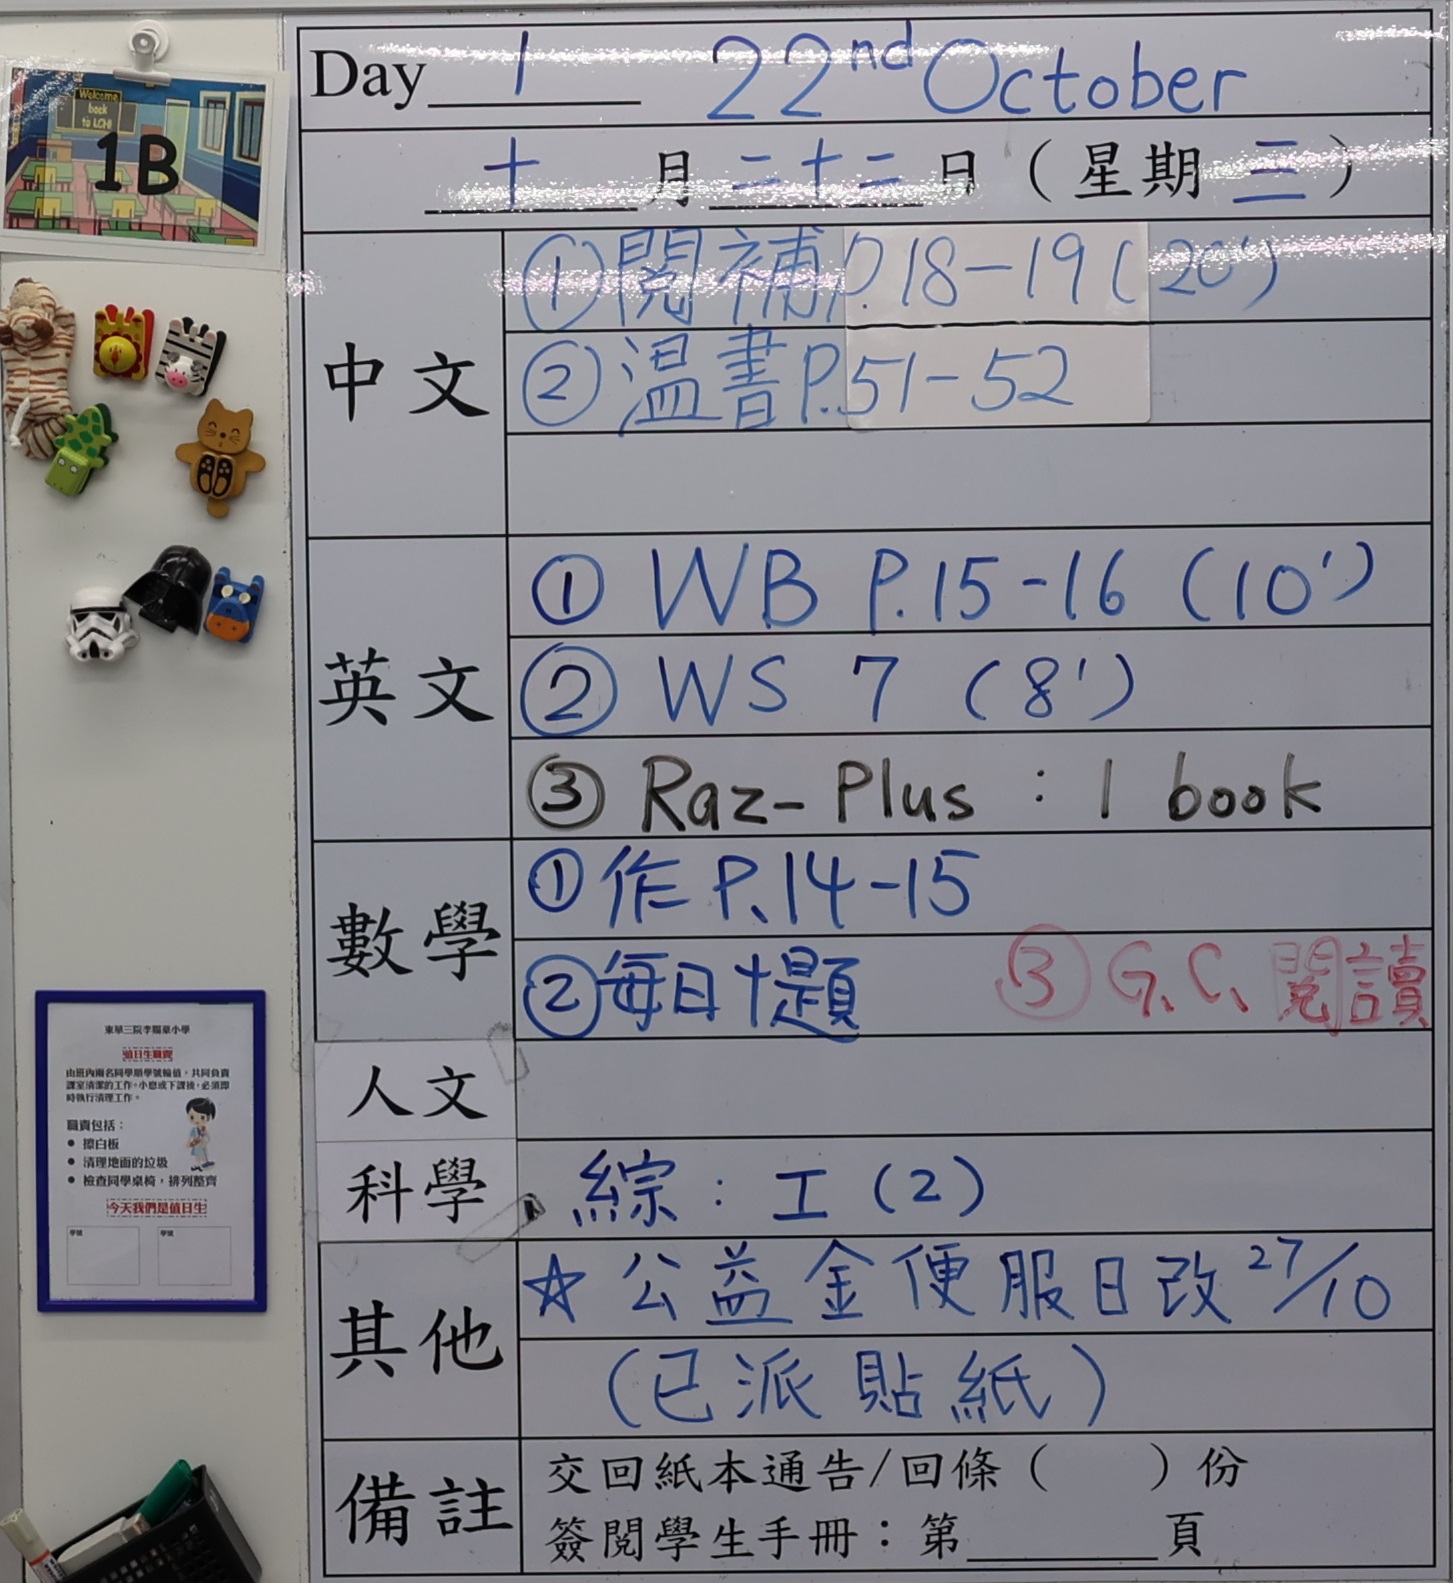 Welcome
back
to LCH!
1B
Day 1 22nd October
十月二十二日（星期三）
中文
①閱補P.18-19(20')
②溫書P.51-52
英文
① WB P.15-16 (10')
② WS 7 (8')
③ Raz-Plus : 1 book
數學
①作P.14-15
②每日十題 ③G.C.閱讀
人文
科學
綜：工(2)
其他
☆公益金便服日改27/10
(已派貼紙)
備註
交回紙本通告/回條（ ）份
簽閱學生手冊：第______頁
東華三院李賜豪小學
值日生職責
由班內兩名同學順學號輪值，共同負責
課室清潔的工作。小息或下課後，必須即
時執行清理工作。
職責包括：
● 擦白板
● 清理地面的垃圾
● 檢查同學桌椅，排列整齊
今天我們是值日生
學號 學號